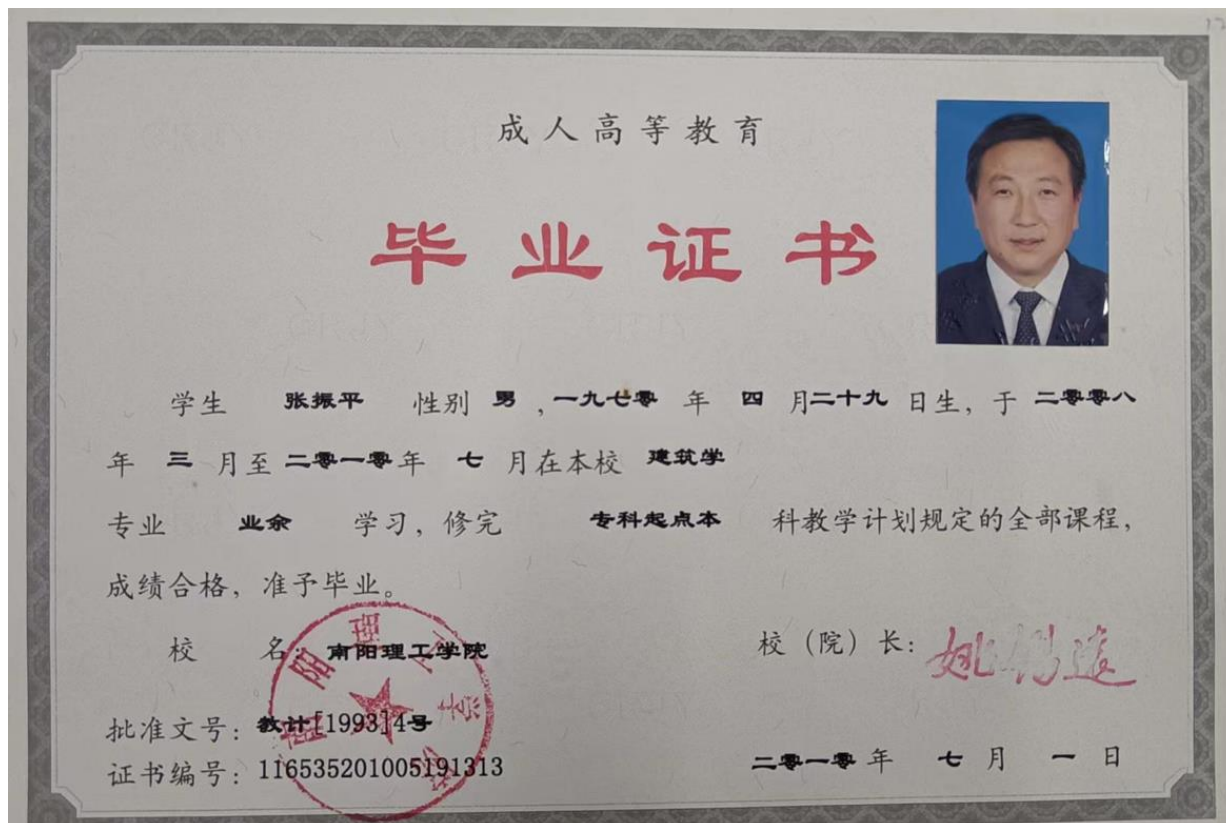 成人高等教育
毕业证书
学生 张振平 性别 男 ,一九七零 年 四 月二十九 日生, 于 二零零八
年 三 月至 二零一零 年 七 月在本校 建筑学
专业 业余 学习, 修完 专科起点本 科教学计划规定的全部课程,
成绩合格, 准予毕业。
校 名: 南阳理工学院
校 (院) 长:
批准文号: 教计[1993]4号
证书编号: 116535201005191313
二零一零 年 七 月 一 日